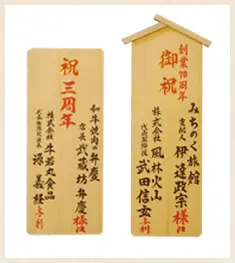 祝
三周年
和牛焼肉の弁慶
店長 武蔵坊弁慶様江
株式会社 牛若丸食品
代表取締役社長 源義経与利
創業70周年
御祝
みちのく旅館
支配人 伊達政宗様江
株式会社 風林火山
代表取締役 武田信玄与利